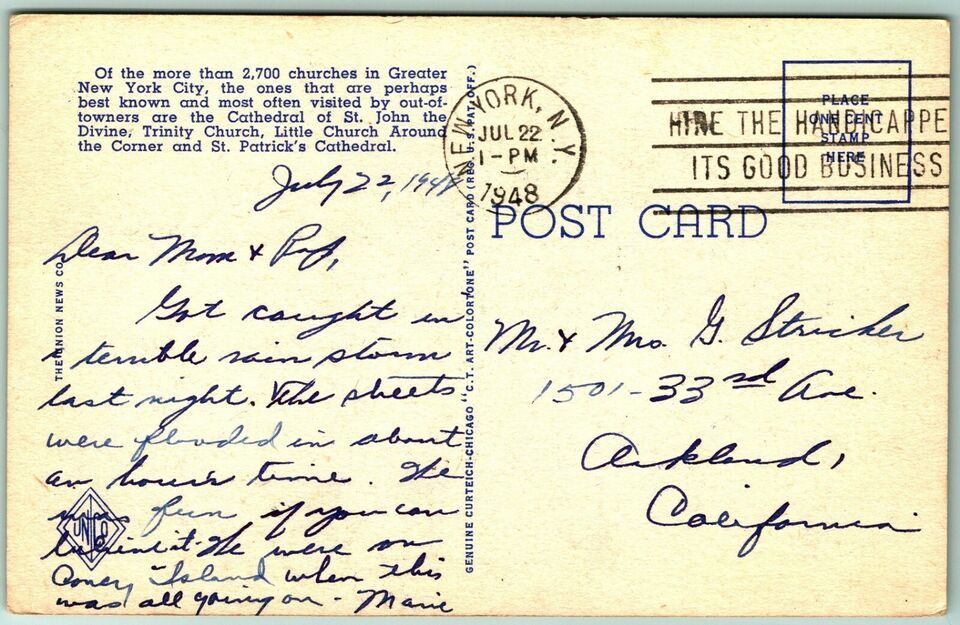 Of the more than 2,700 churches in Greater
New York City, the ones that are perhaps
best known and most often visited by out-of-
towners are the Cathedral of St. John the
Divine, Trinity Church, Little Church Around
the Corner and St. Patrick's Cathedral.
July 22, 1948
Dear Mom & Pop,
Got caught in
a terrible rain storm
last night. The streets
were flooded in about
an hour's time. 
fun if you can
We were on
Coney Island when this
was all going on - Marie
THE UNION NEWS CO.
UNCO
GENUINE CURTEICH-CHICAGO "C.T. ART-COLORTONE" POST CARD (REG. U.S. PAT. OFF.)
NEW YORK, N.Y.
JUL 22
1-PM
1948
HIRE THE HANDICAPPE
ITS GOOD BUSINESS
PLACE
ONE CENT
STAMP
HERE
POST CARD
Mr. & Mrs. G. Stricker
1501-33rd Ave.
Oakland,
California